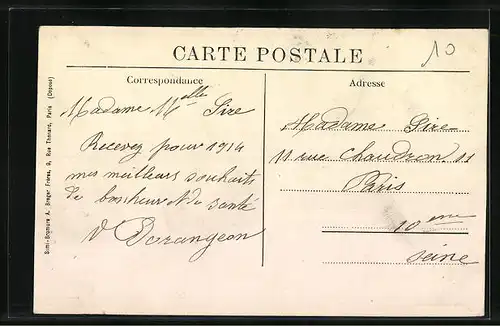 10
CARTE POSTALE
Correspondance
Adresse
Madame Melle Sire
Recevez pour 1914
mes meilleurs souhaits
de bonheur et de santé
V Dorangeon
Madame Sire
11 rue Chaudron 11
Paris
10 eme
Seine
Simi-Bromure A. Breger Frères, 9, Rue Thénard, Paris (Déposé)